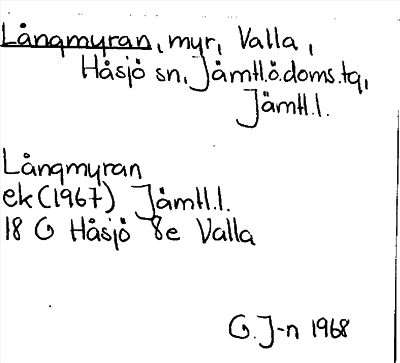 Långmyran, myr, Valla,
Håsjö sn, Jämtl.ö.doms.tg,
Jämtl.l.
Långmyran
ek (1967) Jämtl.l.
18 G Håsjö 8e Valla
G. J-n 1968